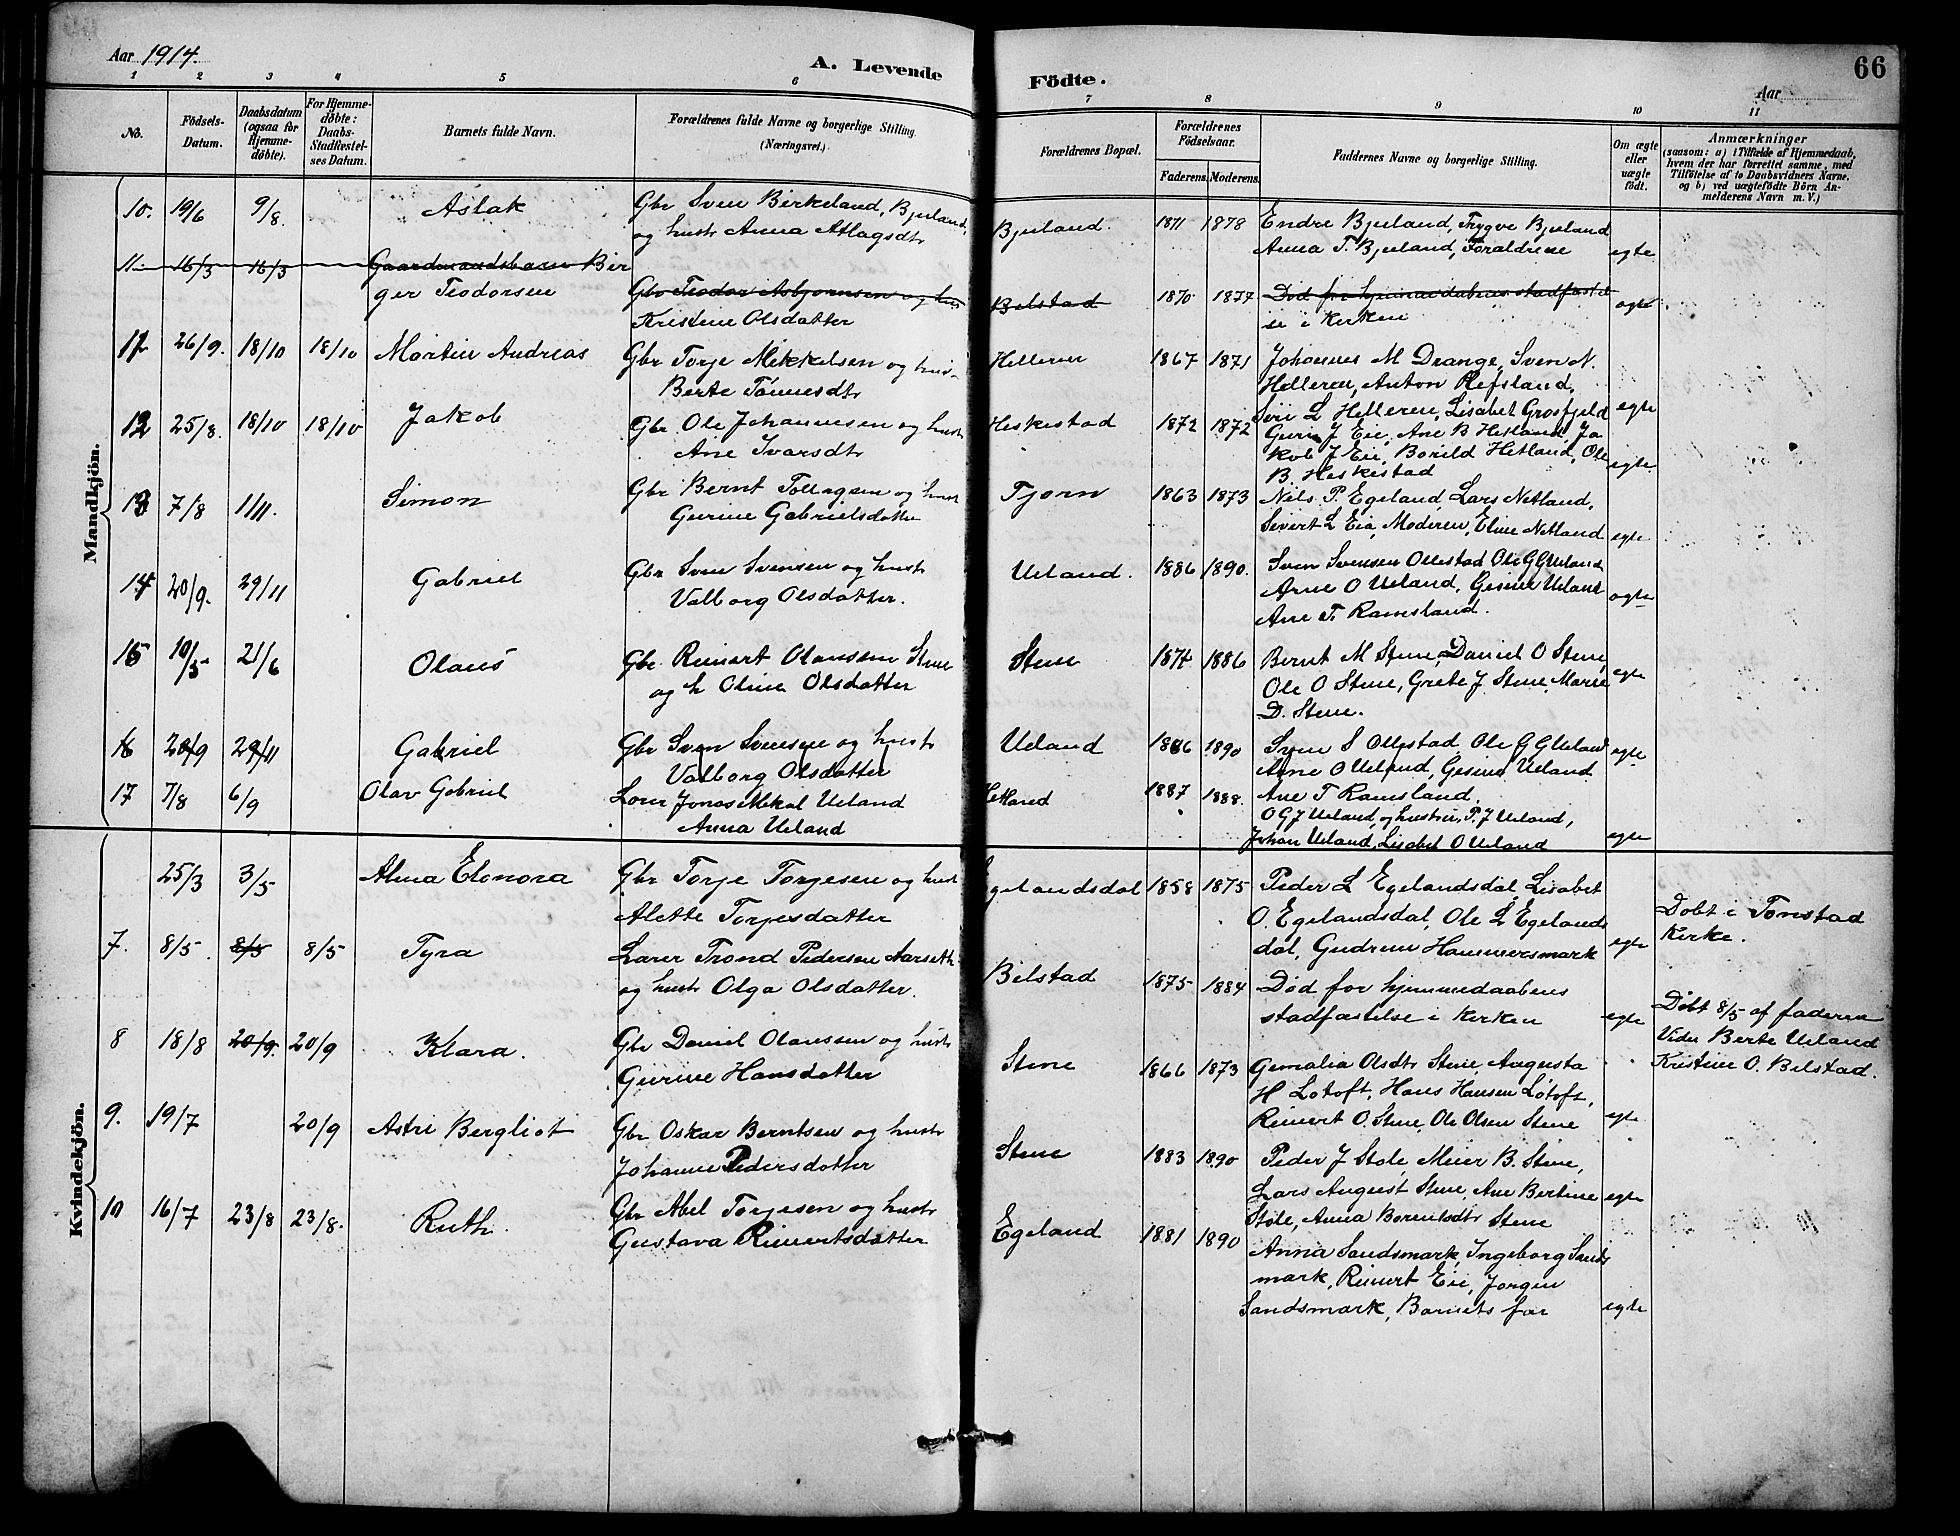 Aar 1914.
A. Levende Födte.
66
Aar
1 2 3 4 5 6 7 8 9 10 11
No.
Födsels-Datum.
Daabsdatum (ogsaa for Hjemme-døbte).
For Hjemme-døbte: Daabs-Stadfæstel-ses Datum.
Barnets fulde Navn.
Forældrenes fulde Navne og borgerlige Stilling. (Næringsvei.)
Forældrenes Bopæl.
Forældrenes Födselsaar.
Faderens. Moderens.
Faddernes Navne og borgerlige Stilling.
Om ægte eller uægte födt.
Anmærkninger
(saasom: a) i Tilfælde af Hjemmedaab,
hvem der har forrettet samme, med
Tilföielse af to Daabsvidners Navne.
og b) ved uægtefödte Börn An-
melderens Navn m. V.)
Mandkjön.
10. 19/6 9/8. Aslak Gbr Sven Birkeland, Bjuland,
og hustr Anna Atlagsdtr
Bjuland. 1871 1878 Endre Bjuland, Trygve Bjuland
Anna T. Bjuland, Forældrene egte
11 16/3 16/3 Gaardmandsbarn Bir
ger Teodorsen Gbr Teodor Asbjornsen og hus
Kristine Olsdatter
Belstad 1870 1874 Död for hjemmedabens stadfæstel
se i kirken egte
12 26/9. 18/10 18/10 Martin Andreas Gbr Torje Mikkelsen og hus
Berte Tönnesdtr
Helleren 1867 1871 Johannes M Drange, Sven N.
Helleren, Anton Refsland,
Siri L Helleren, Lisabet Grosfjeld egte
12 25/8. 18/10 18/10 Jakob Gbr Ole Johannesen og hustr
Ane Ivarsdtr
Heskestad 1872 1872 Guri J Eie, Ane B Hetland, Ja
kob J Eie, Borild Hetland, Ole
B. Heskestad egte
13 7/8 1/11. Simon Gbr Bernt Tollagsen og hust
Gurine Gabrielsdatter
Tjorn 1863 1873 Nils P. Egeland, Lars Netland,
Sivert L Eia, Moderen, Eline Netland egte
14 20/9. 29/11 Gabriel Gbr Sven Svensen og hustr
Valborg Olsdatter.
Ueland. 1886 1890. Sven Svensen Ollestad Ole G G Ueland
Arne O Ueland, Gesine Ueland
Ane T. Ramsland. egte
15 10/5 21/6 Olaus Gbr. Reinert Olaussen Stene
og h Oline Olsdatter
Stene 1874 1886 Bernt M Stene, Daniel O Stene
Ole O Stene, Grete J Stene, Marie
D. Stene. egte
16 20/9 29/11 Gabriel Gbr Sven Svensen og hustr
Valborg Olsdatter
Ueland 1886 1890 Sven S Ollestad, Ole G G Ueland
Arne O Ueland, Gesine Ueland
Ane T Ramsland. egte
17 7/8 6/9 Olav Gabriel Lærer Jonas Mikal Ueland
Anna Ueland
Hetland 1887 1888. O G J Ueland, og hustru, P. J Ueland,
Johan Ueland, Lisabet O Ueland egte
Kvindekjön.
25/3 3/5 Alma Elonora Gbr Torje Torjesen og hust
Alette Torjesdatter
Egelandsdal 1858 1875 Peder L Egelandsdal, Lisabet
O. Egelandsdal, Ole L Egelands
dal, Gudrun Hammersmark egte
Dobt i Tonstad
Kirke.
7. 8/5. 8/5 8/5 Tyra Lærer Trond Pedersen Aarseth
og hustr Olga Olsdatter.
Belstad 1875 1884 Död for hjemmedaabens
stadfæstelse i kirken egte
Döbt 8/5 af faderen
Vidn Berte Ueland
Kristine O. Belstad.
8 18/8 20/9. 20/9 Klara. Gbr Daniel Olaussen og hustr
Gurine Hansdatter
Stene 1866 1873 Gemalia Olsdtr Stene, Augusta
H Lotoft, Hans Hansen Lotoft,
Reinert O. Stene, Ole Olsen Stene egte
9. 19/7 20/9 Astri Bergliot Gbr Oskar Berntsen og hustr
Johanne Pedersdatter
Stene 1883 1890 Peder J Stole, Meier B. Stene,
Lars August Stene, Ane Bertine
Stöle, Anna Berentsdtr Stene egte
10 16/7 23/8 23/8. Ruth. Gbr Abel Torjesen og hustr
Gustava Reinertsdatter
Egeland 1881 1890 Anna Sandsmark, Ingeborg Sands
mark, Reinert Eie, Jorgen
Sandsmark, Barnets far egte